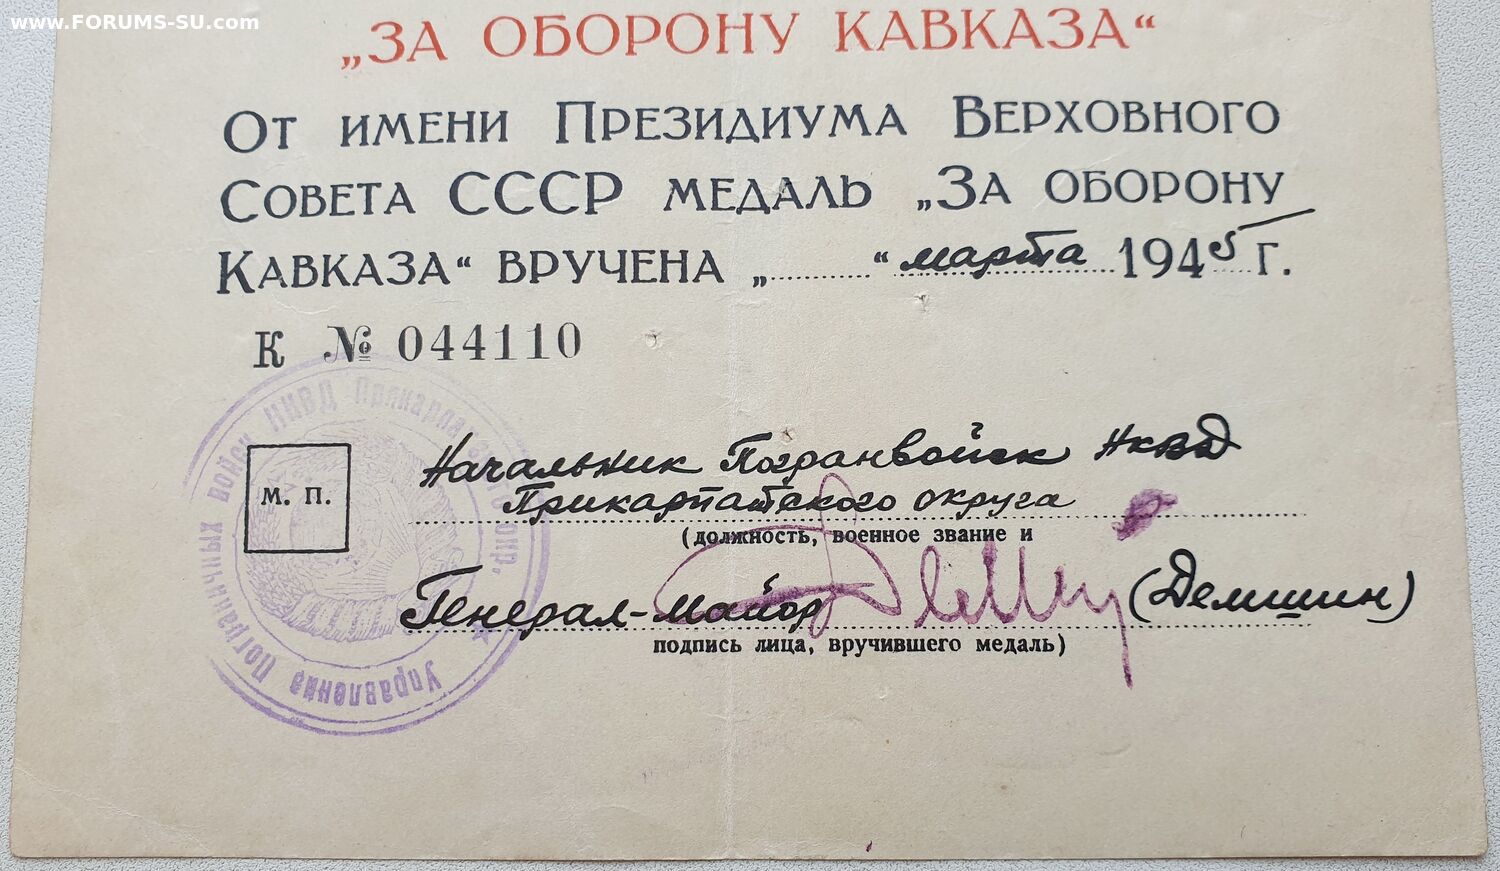 www.FORUMS-SU.com
„ЗА ОБОРОНУ КАВКАЗА“
От имени Президиума Верховного
Совета СССР медаль „За оборону
Кавказа“ вручена „.........“ марта 1945 г.
К № 044110
Управления Пограничных войск НКВД Прикарпатского окр.
М. П.
Начальник Погранвойск НКВД
Прикарпатского округа
(должность, военное звание и
Генерал-Майор (Демшин)
подпись лица, вручившего медаль)